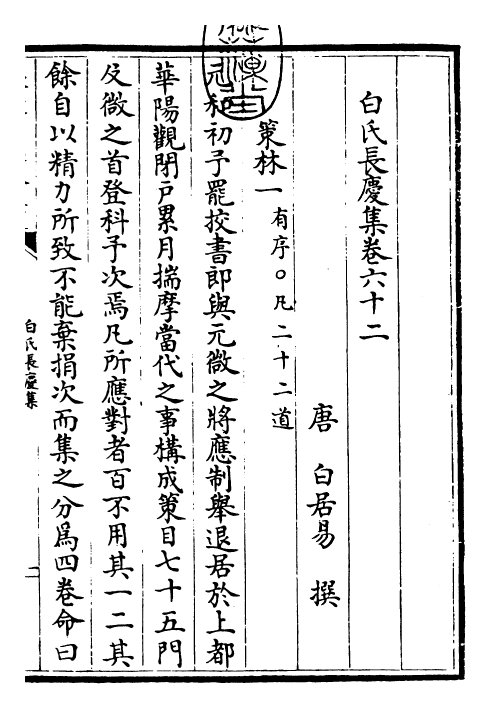 白氏長慶集卷六十二
唐 白居易 撰
策林一 有序○凡二十二道
元和初予罷挍書郎與元微之將應制舉退居於上都
華陽觀閉戶累月揣摩當代之事構成策目七十五門
及微之首登科予次焉凡所應對者百不用其一二其
餘自以精力所致不能棄捐次而集之分爲四卷命曰
白氏長慶集